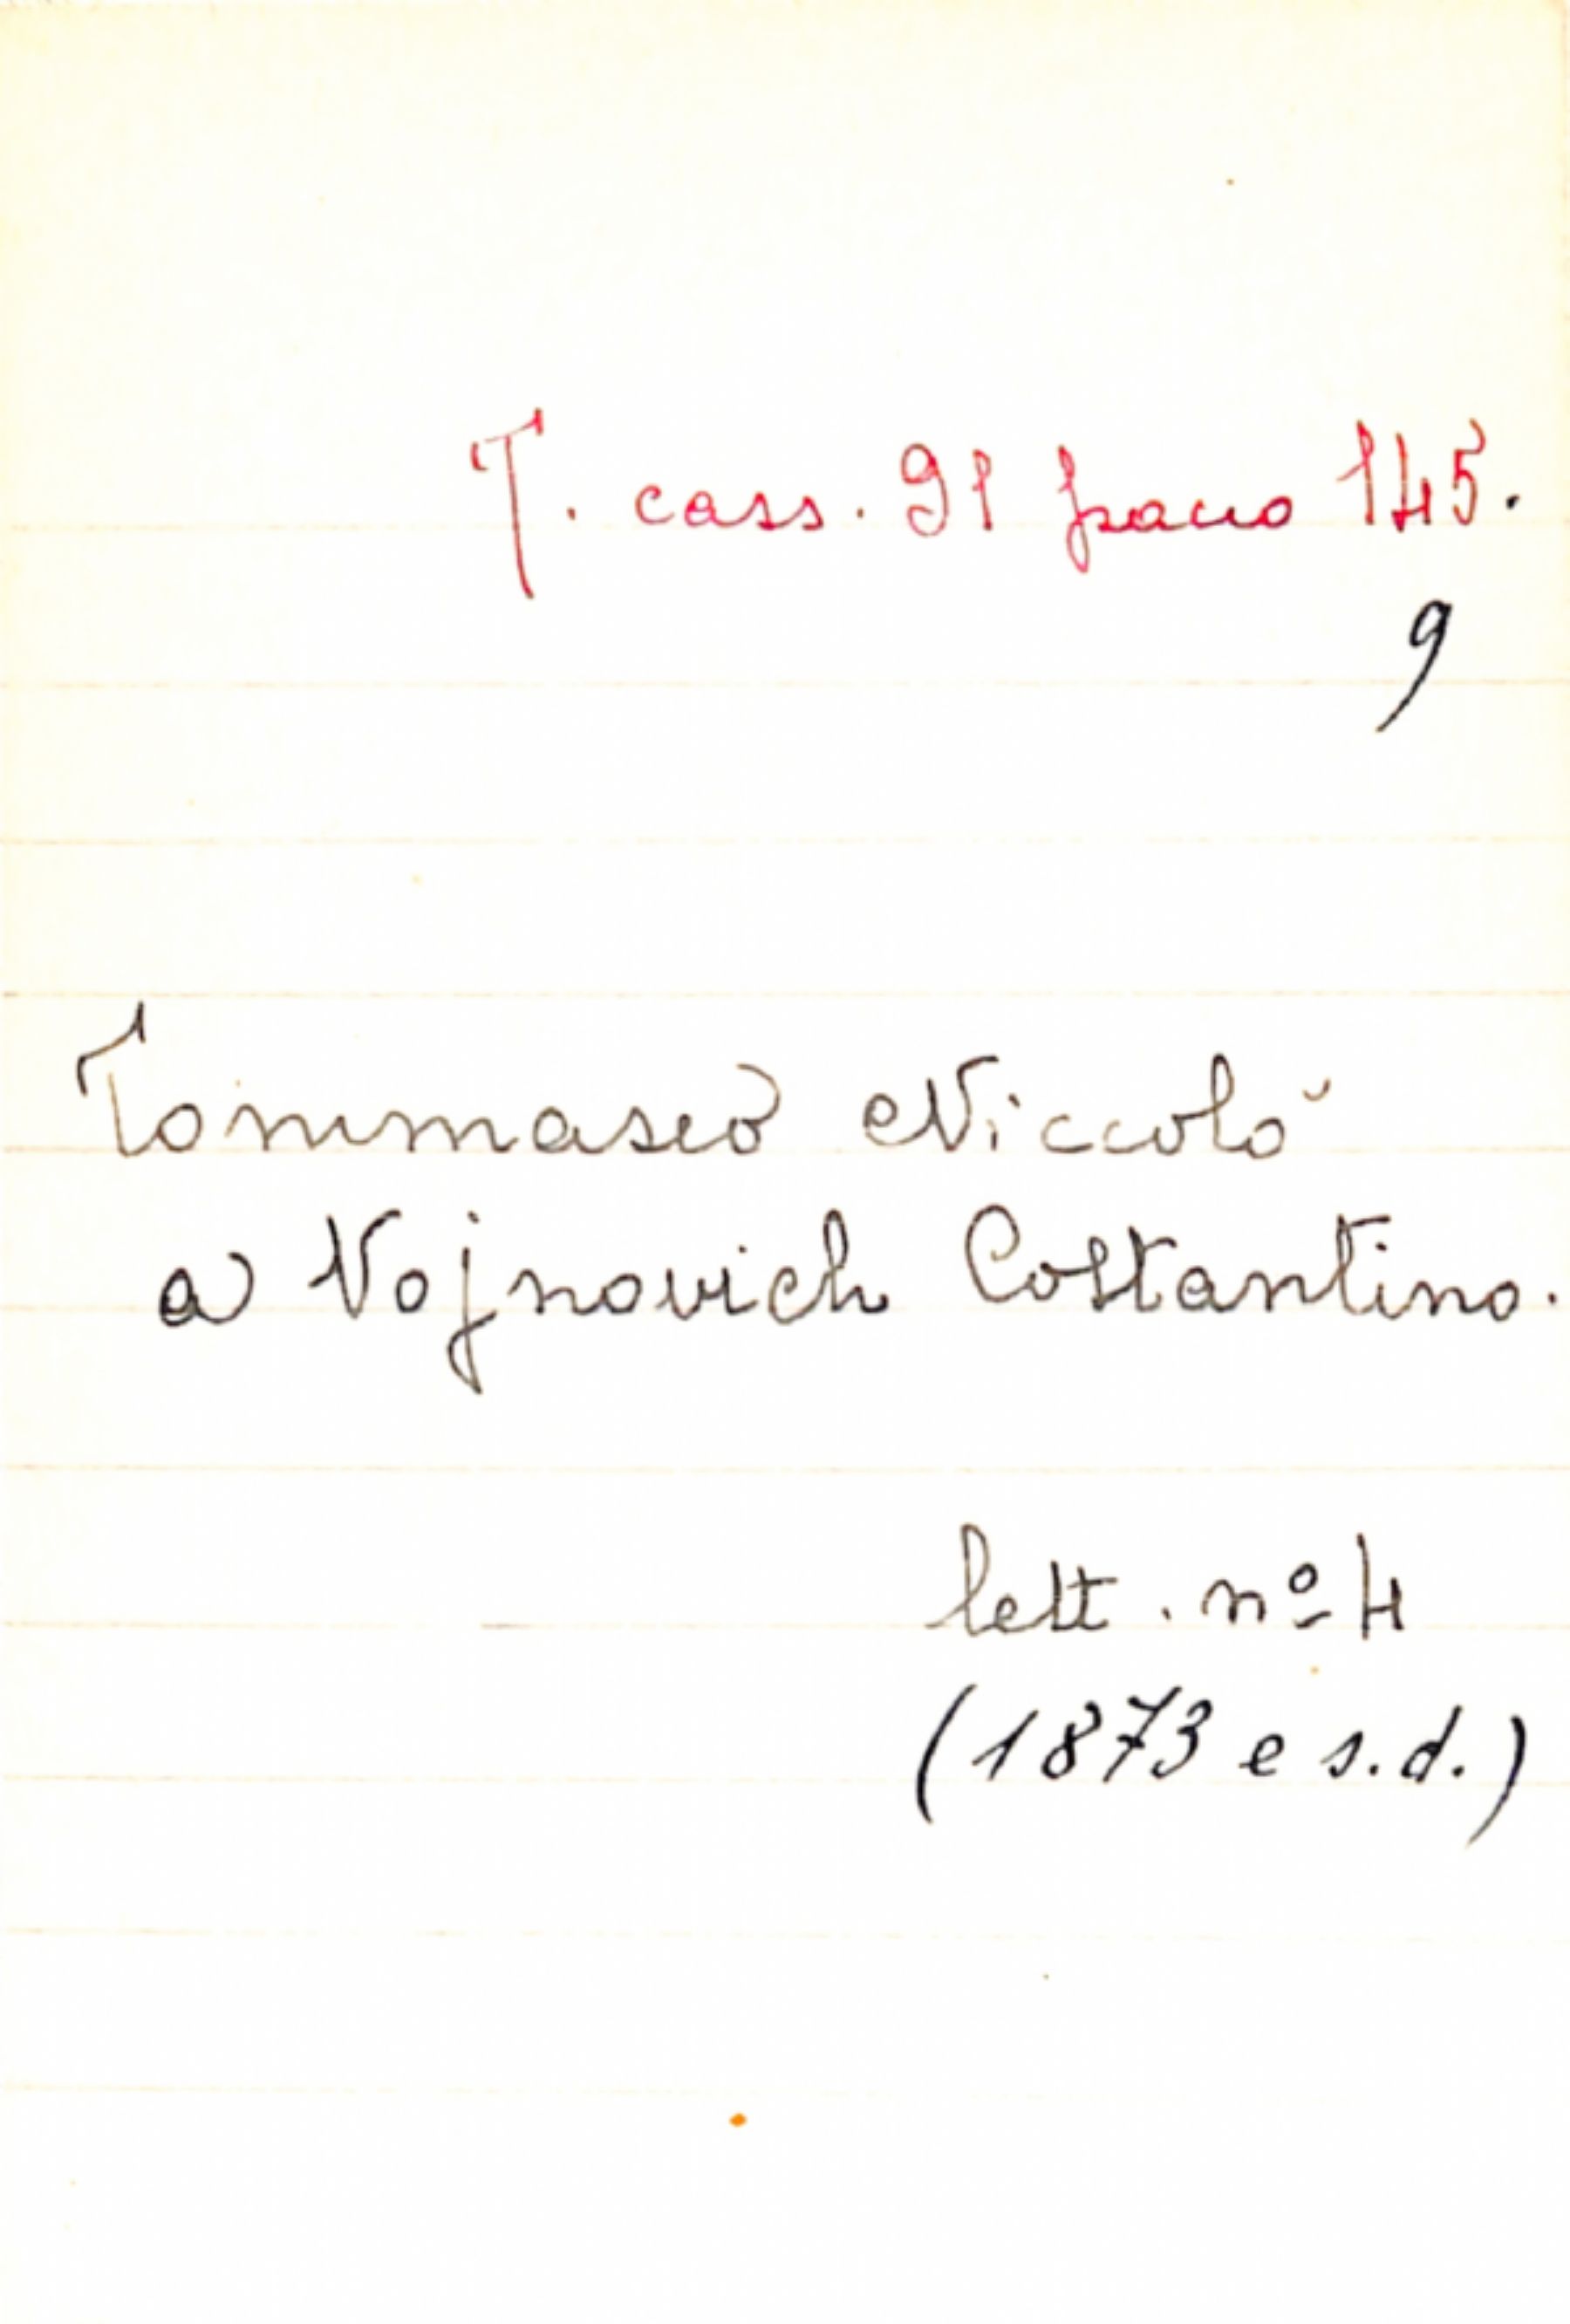 T. cass. 91 pacco 145.
9
Tommaseo Niccolò
a Vojnovich Costantino.
lett. nº 4
(1873 e s.d.)